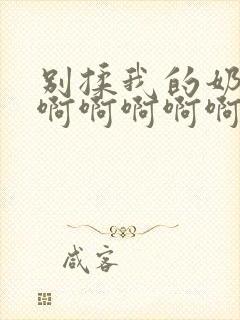 别揉我的奶
啊啊啊啊啊
咸客